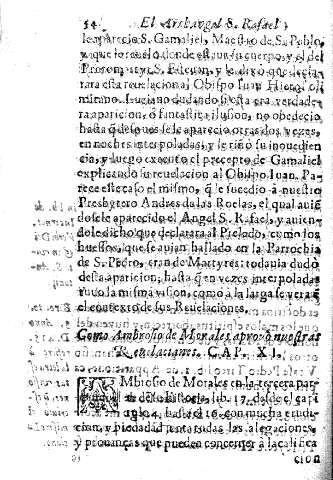 54 El Archangel S. Rafael,
le apareciò S. Gamaliel, Maestro de S. Pablo,
y que le revelò donde estaua su cuerpo, y el del
Protomartyr S. Esteuan, y le dixo que decla-
rara esta reuelacion al Obispo Iuan Hieroso-
Luciano dudando si esta era verdade-
ra aparicion, ò fantastica ilusion, no obedecio
hasta q̃ despues se le apareciò otras dos vezes,
en noches interpoladas, y le riñò su inouedien
cia, y luego executò el precepto de Gamaliel
explicando su reuelacion al Obispo Iuan. Pa-
rece este caso el mismo, q̃ le sucediò à nuestro
Presbytero Andres de las Roelas, el qual auiē
dosele aparecido el Angel S. Rafael, y auien-
dole dicho que declarara al Prelado, como los
huessos, que se auian hallado en la Parrochia
de S. Pedro, eran de Martyres: todauia dudò
desta aparicion, hasta q̃ en vezes interpoladas
tuuo la misma vision, como à la larga se verà ē
el contexto de sus Reuelaciones.
Como Ambrosio de Morales aprovò nuestras
Reuelaciones. CAP. XI.
AMbrosio de Morales en la tercera par-
te de su Historia, lib. 17. desde el capi
hasta 16. con mucha erudi-
cion, y piedad junta todas las alegaciones,
y prouanças que pueden concernir à la califica
cion